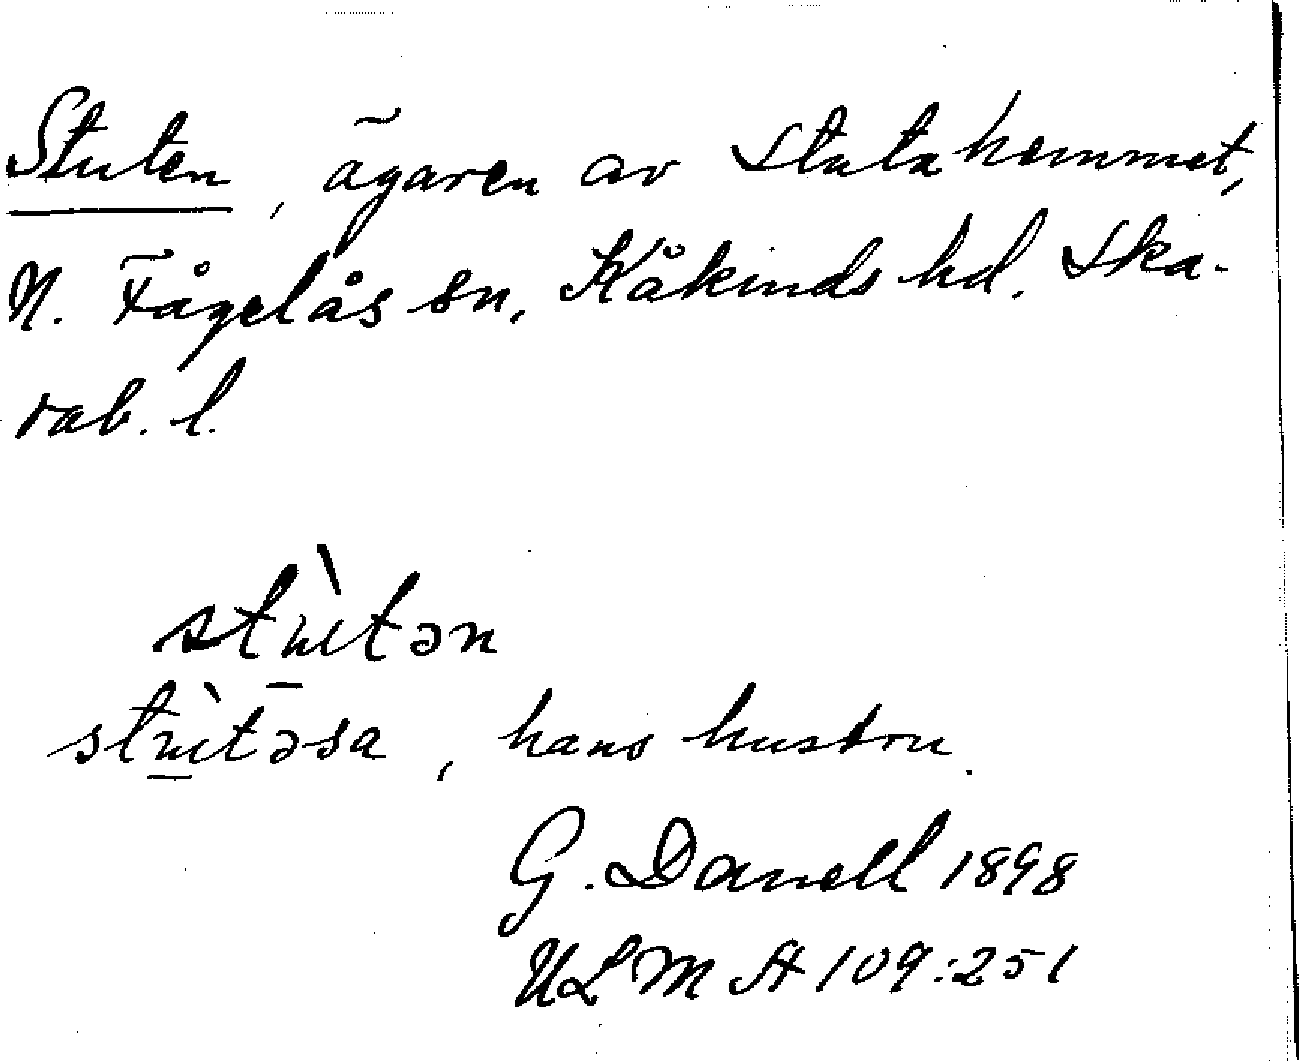 Stuten, ägaren av Stutahemmet,
N. Fågelås sn, Kåkinds hd. Ska-
rab. l.
stùtən
stùtəsa, hans hustru.
G. Danell 1898
ULMA 109:251